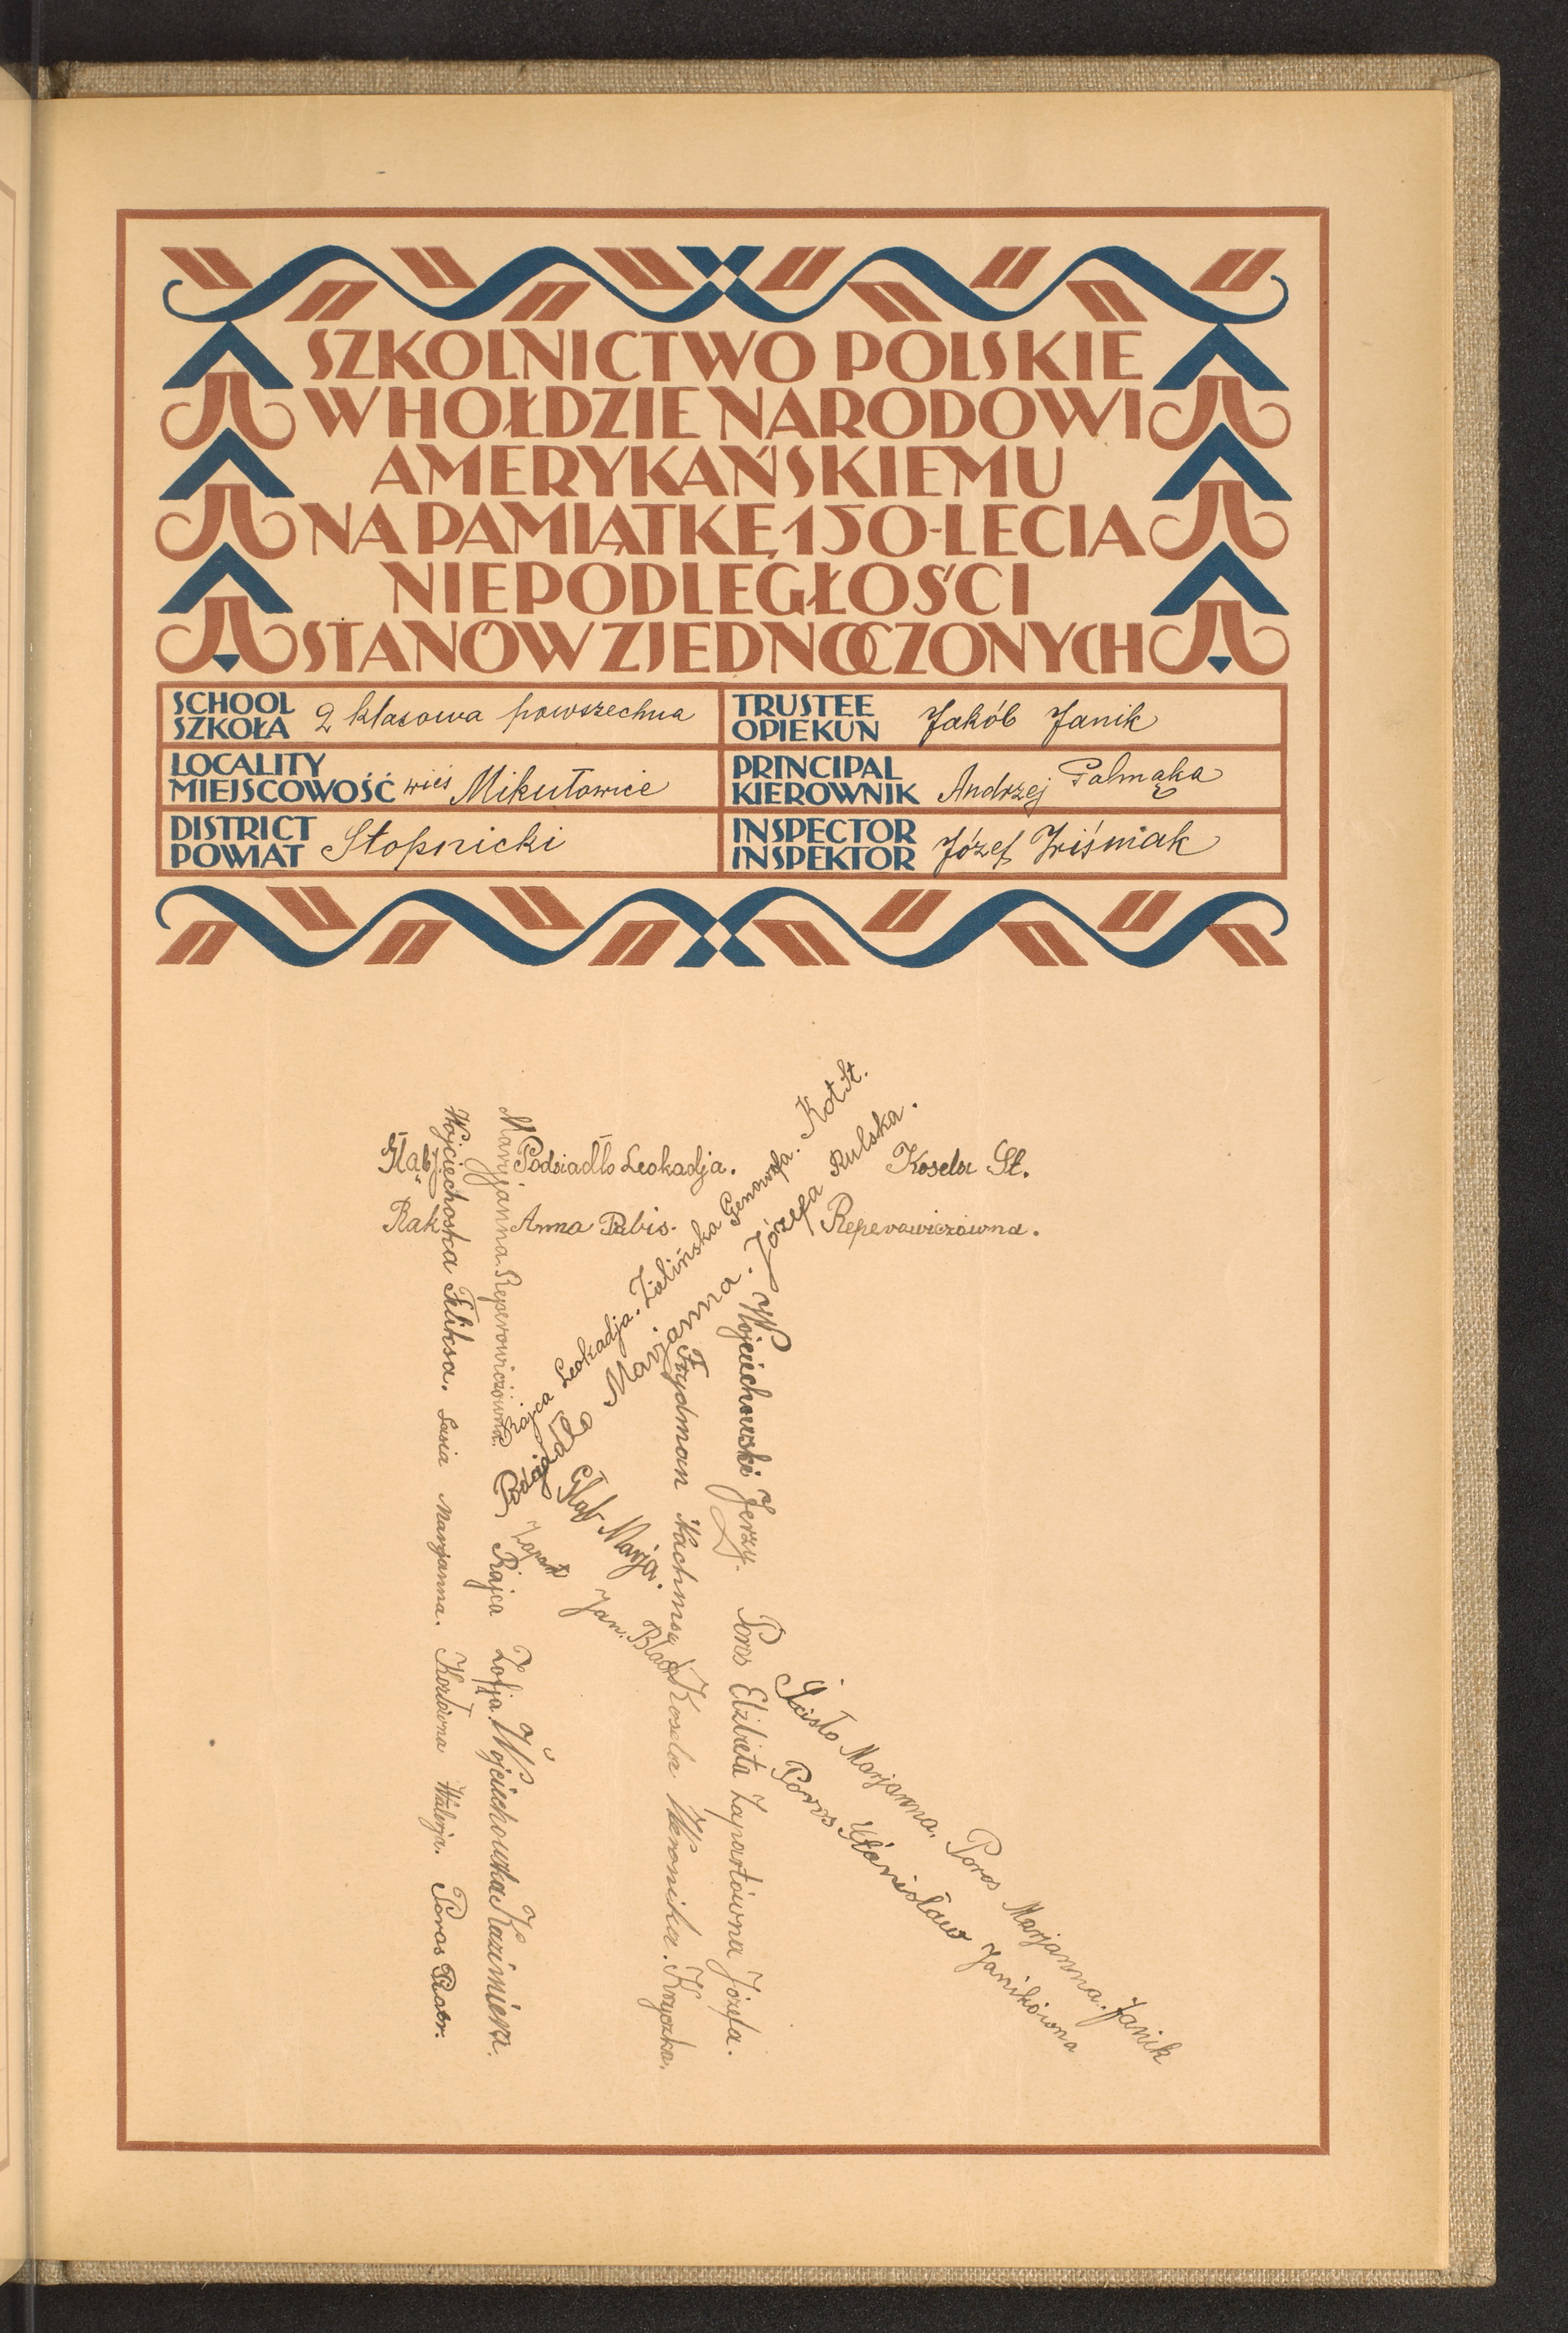 SZKOLNICTWO POLSKIE
W HOŁDZIE NARODOWI
AMERYKAŃSKIEMU
NA PAMIĄTKĘ 150-LECIA
NIEPODLEGŁOŚCI
STANÓW ZJEDNOCZONYCH
SCHOOL
SZKOŁA 2 klasowa powszechna
TRUSTEE
OPIEKUN Jakób Janik
LOCALITY
MIEJSCOWOŚĆ wieś Mikułowice
PRINCIPAL
KIEROWNIK Andrzej Galmąka
DISTRICT
POWIAT Stopnicki
INSPECTOR
INSPEKTOR Józef Wiśniak
Podsiadło Leokadja.
Kosela St.
Rak
Anna Pabis.
Reperowiczówna.
Wojciechoska Feliksa. Lusia Marjanna. Kozłówna Walerja. Poros Piotr.
Marjanna Reperowiczówna. Rajca Zofja. Wojciechowska Kazimiera.
Rajca Leokadja. Zielińska Genowefa. Kot St.
Podsiadło Marjanna. Józefa Rulska.
Głąb Marja.
Zapart Jan.
Frydman Nachmsy Kosela Weronika. Kryczka.
Wojciechowski Jerzy. Poros Elżbieta Zapartówna Józefa.
Ścisło Marjanna. Poros Marjanna. Janik
Poros Stanisław Janikówna